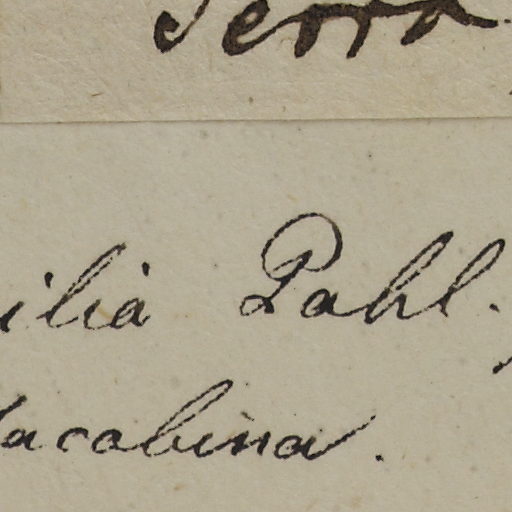 Serra
ilia Pohl.
Jacobina.